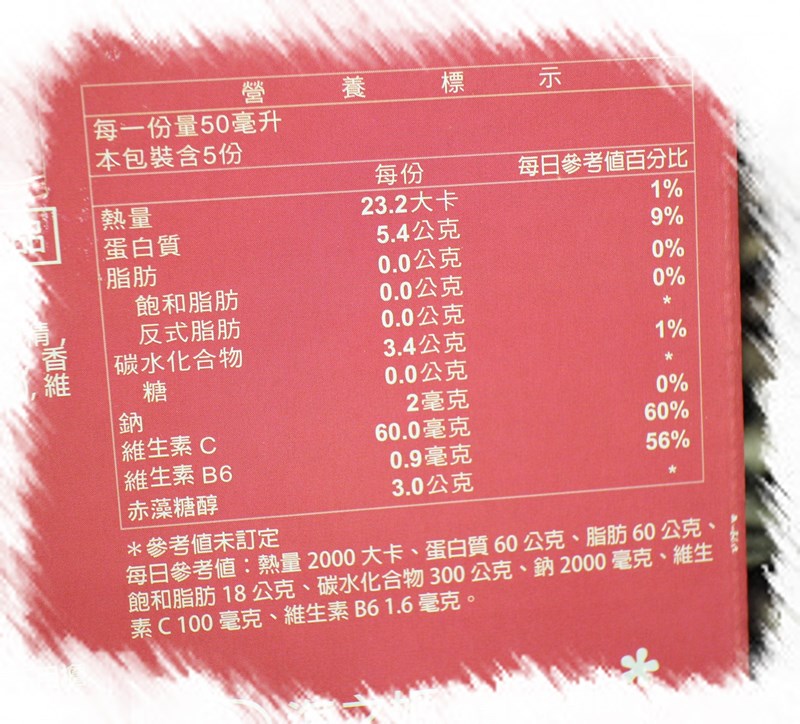 營養標示
每一份量50毫升
本包裝含5份
每份 每日參考值百分比
熱量 23.2大卡 1%
蛋白質 5.4公克 9%
脂肪 0.0公克 0%
飽和脂肪 0.0公克 0%
反式脂肪 0.0公克 *
碳水化合物 3.4公克 1%
糖 0.0公克 *
鈉 2毫克 0%
維生素 C 60.0毫克 60%
維生素 B6 0.9毫克 56%
赤藻糖醇 3.0公克 *
＊參考值未訂定
每日參考值：熱量 2000 大卡、蛋白質 60 公克、脂肪 60 公克、
飽和脂肪 18 公克、碳水化合物 300 公克、鈉 2000 毫克、維生
素 C 100 毫克、維生素 B6 1.6 毫克。
香
,維